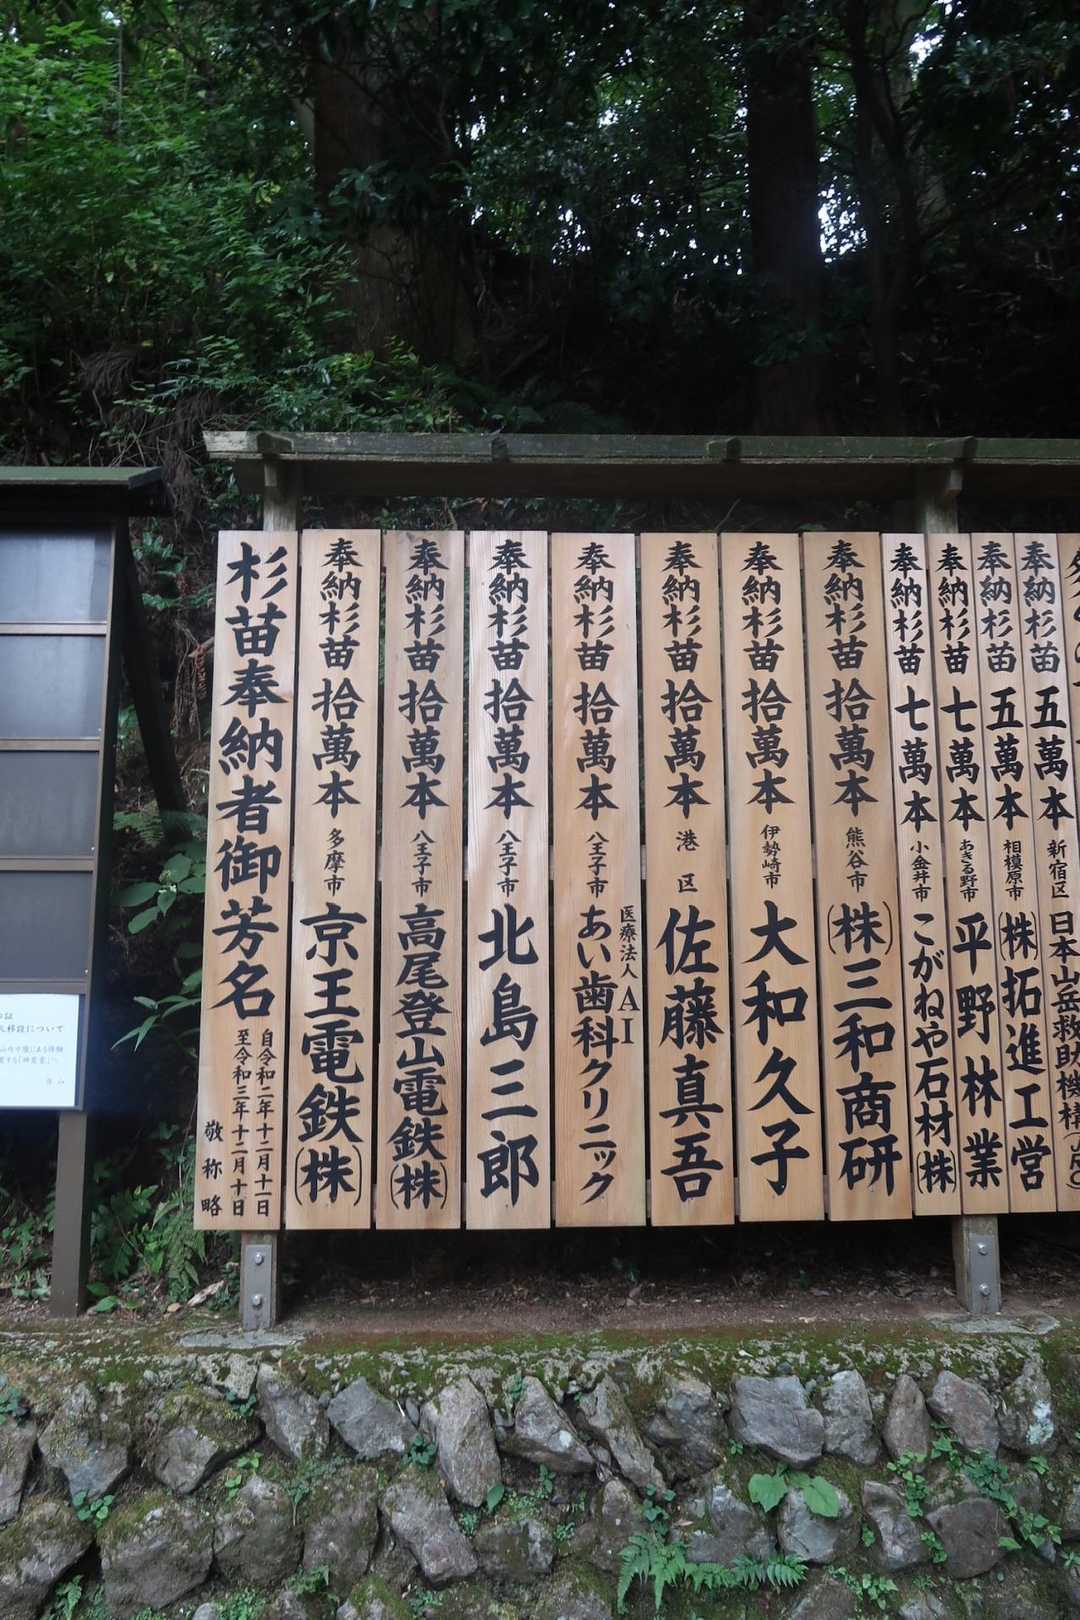 杉苗奉納者御芳名
自令和二年十二月十一日
至令和三年十二月十日
敬称略
奉納杉苗拾萬本 多摩市 京王電鉄(株)
奉納杉苗拾萬本 八王子市 高尾登山電鉄(株)
奉納杉苗拾萬本 八王子市 北島三郎
奉納杉苗拾萬本 八王子市 医療法人AI
あい歯科クリニック
奉納杉苗拾萬本 港区 佐藤真吾
奉納杉苗拾萬本 伊勢崎市 大和久子
奉納杉苗拾萬本 熊谷市 (株)三和商研
奉納杉苗七萬本 小金井市 こがねや石材(株)
奉納杉苗七萬本 あきる野市 平野林業
奉納杉苗五萬本 相模原市 (株)拓進工営
奉納杉苗五萬本 新宿区 日本山岳救助機構